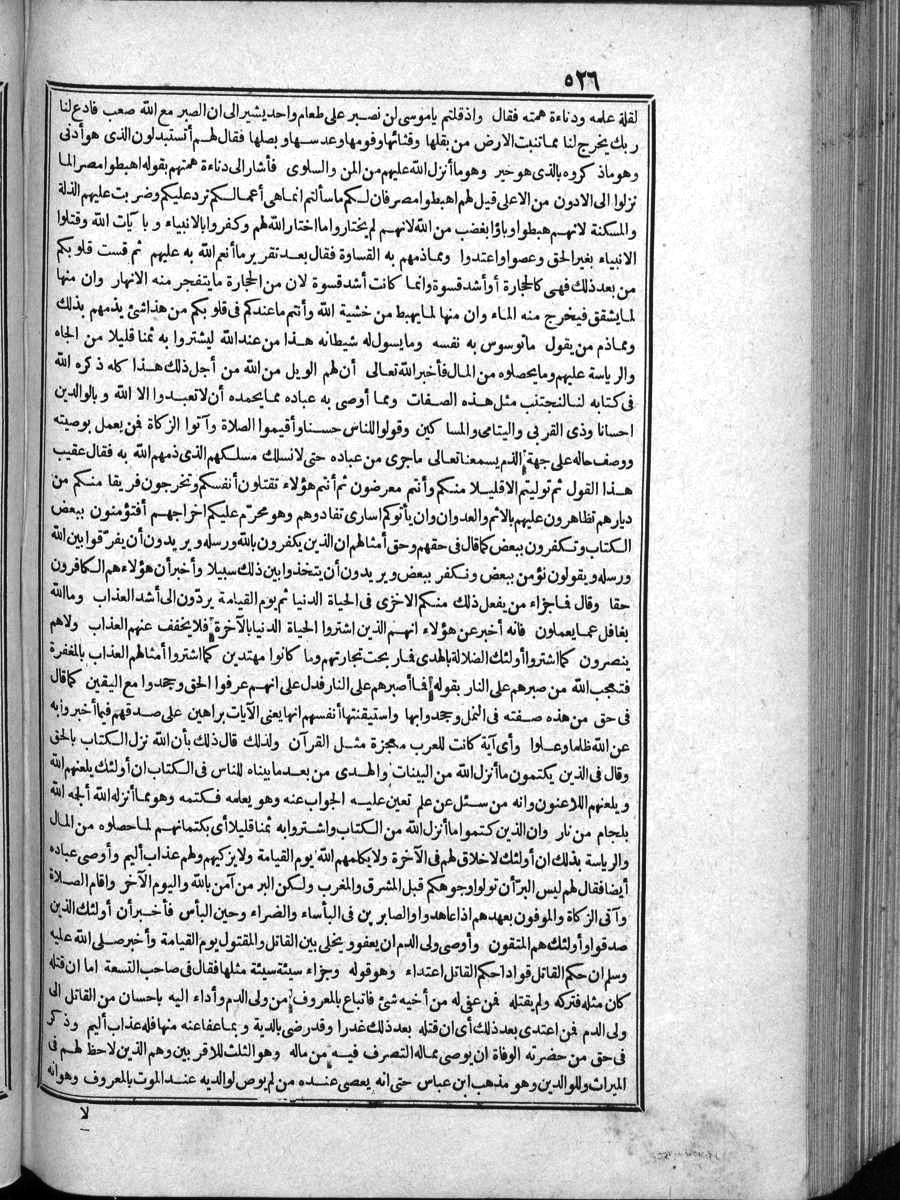 ٥٢٦
لقلة علمه ودناءة همته فقال واذقلتم ياموسى لن نصبر على طعام واحد يشير الى ان الصبر مع الله صعب فادع لنا
ربك يخرج لنا مما تنبت الارض من بقلها وقثائها وفومها وعدسها وبصلها فقال لهم أتستبدلون الذى هو أدنى
وهو ماذكروه بالذى هو خير وهو ما أنزل الله عليهم من المن والسلوى فأشار الى دناءة همتهم بقوله اهبطوا مصرا لما
نزلوا الى الادون من الاعلى قيل لهم اهبطوا مصر فان لكم ماسألتم انما هى أعمالكم ترد عليكم وضربت عليهم الذلة
والمسكنة لانهم هبطوا وباؤا بغضب من الله لانهم لم يختاروا ما اختار الله لهم وكفروا بالانبياء وبا يات الله وقتلوا
الانبياء بغير الحق وعصوا واعتدوا ومماذمهم به القساوة فقال بعد تقرير ما أنعم الله به عليهم ثم قست قلوبكم
من بعد ذلك فهى كالحجارة أو أشد قسوة وانما كانت أشد قسوة لان من الحجارة ما يتفجر منه الانهار وان منها
لما يشقق فيخرج منه الماء وان منها لما يهبط من خشية الله وأنتم ما عندكم فى قلوبكم من هذا شئ يذمهم بذلك
ومماذم من يقول ماتوسوس به نفسه ومايسول له شيطانه هذا من عند الله ليشتروا به ثمنا قليلا من الجاه
والرياسة عليهم وما يحصلوه من المال فأخبر الله تعالى أن لهم الويل من الله من أجل ذلك هذا كله ذكره الله
فى كتابه لنا لنجتنب مثل هذه الصفات ومما أوصى به عباده مما يحمده أن لا تعبدوا الا الله وبالوالدين
احسانا وذى القربى واليتامى والمساكين وقولوا للناس حسنا وأقيموا الصلاة وآتوا الزكاة فمن يعمل بوصيته
ووصف حاله على جهة الذم يسمعنا تعالى ماجرى من عباده حتى لانسلك مسلكهم الذى ذمهم الله به فقال عقيب
هذا القول ثم توليتم الاقليلا منكم وأنتم معرضون ثم أنتم هؤلاء تقتلون أنفسكم وتخرجون فريقا منكم من
ديارهم تظاهرون عليهم بالاثم والعدوان وان يأتوكم اسارى تفادوهم وهو محرّم عليكم اخراجهم أفتؤمنون ببعض
الكتاب وتكفرون ببعض كما قال فى حقهم وحق أمثالهم ان الذين يكفرون بالله ورسله ويريدون أن يفرّقوا بين الله
ورسله ويقولون نؤمن ببعض ونكفر ببعض ويريدون أن يتخذوا بين ذلك سبيلا وأخبر أن هؤلاء هم الكافرون
حقا وقال فماجزاء من يفعل ذلك منكم الاخزى فى الحياة الدنيا ثم يوم القيامة يردّون الى أشد العذاب وما الله
بغافل عما يعملون فانه أخبر عن هؤلاء انهم الذين اشتروا الحياة الدنيا بالآخرة فلا يخفف عنهم العذاب ولاهم
ينصرون كما اشتروا أولئك الضلالة بالهدى فماربحت تجارتهم وما كانوا مهتدين كما اشتروا أمثالهم العذاب بالمغفرة
فتعجب الله من صبرهم على النار بقوله فما أصبرهم على النار فدل على انهم عرفوا الحق وجحدوا مع اليقين كما قال
فى حق من هذه صفته فى النمل وجحدوا بها واستيقنتها أنفسهم انها يعنى الآيات براهين على صدقهم فيما أخبروا به
عن الله ظلما وعلوا وأى آية كانت للعرب معجزة مثل القرآن ولذلك قال ذلك بأن الله نزل الكتاب بالحق
وقال فى الذين يكتمون ما أنزل الله من البينات والهدى من بعد ما بيناه للناس فى الكتاب ان أولئك يلعنهم الله
ويلعنهم اللاعنون وانه من سئل عن علم تعين عليه الجواب عنه وهو يعلمه فكتمه وهو مما أنزله الله ألجمه الله
بلجام من نار وان الذين كتموا ما أنزل الله من الكتاب واشتروا به ثمنا قليلا أى بكتمانهم لما حصلوه من المال
والرياسة بذلك ان أولئك لاخلاق لهم فى الآخرة ولا يكلمهم الله يوم القيامة ولا يزكيهم ولهم عذاب أليم وأوصى عباده
أيضا فقال لهم ليس البرّ أن تولوا وجوهكم قبل المشرق والمغرب ولكن البر من آمن بالله واليوم الآخر واقام الصلاة
وآتى الزكاة والموفون بعهدهم اذا عاهدوا والصابرين فى البأساء والضراء وحين البأس فأخبر أن أولئك الذين
صدقوا وأولئك هم المتقون وأوصى ولى الدم ان يعفو ويخلى بين القاتل والمقتول يوم القيامة وأخبر صلى الله عليه
وسلم ان حكم القاتل قودا حكم القاتل اعتداء وهو قوله وجزاء سيئة سيئة مثلها فقال فى صاحب التسعة اما ان قتله
كان مثله فتركه ولم يقتله فمن عفى له من أخيه شئ فاتباع بالمعروف من ولى الدم وأداء اليه باحسان من القاتل الى
ولى الدم فمن اعتدى بعد ذلك أى ان قتله بعد ذلك غدرا وقد رضى بالدية وبما عفا عنه منها فله عذاب أليم وذكر
فى حق من حضرته الوفاة ان يوصى بماله التصرف فيه من ماله وهو الثلث للاقربين وهم الذين لاحظ لهم فى
الميراث وللوالدين وهو مذهب ابن عباس حتى انه يعصى عنده من لم يوص لوالديه عند الموت بالمعروف وهو انه
لا